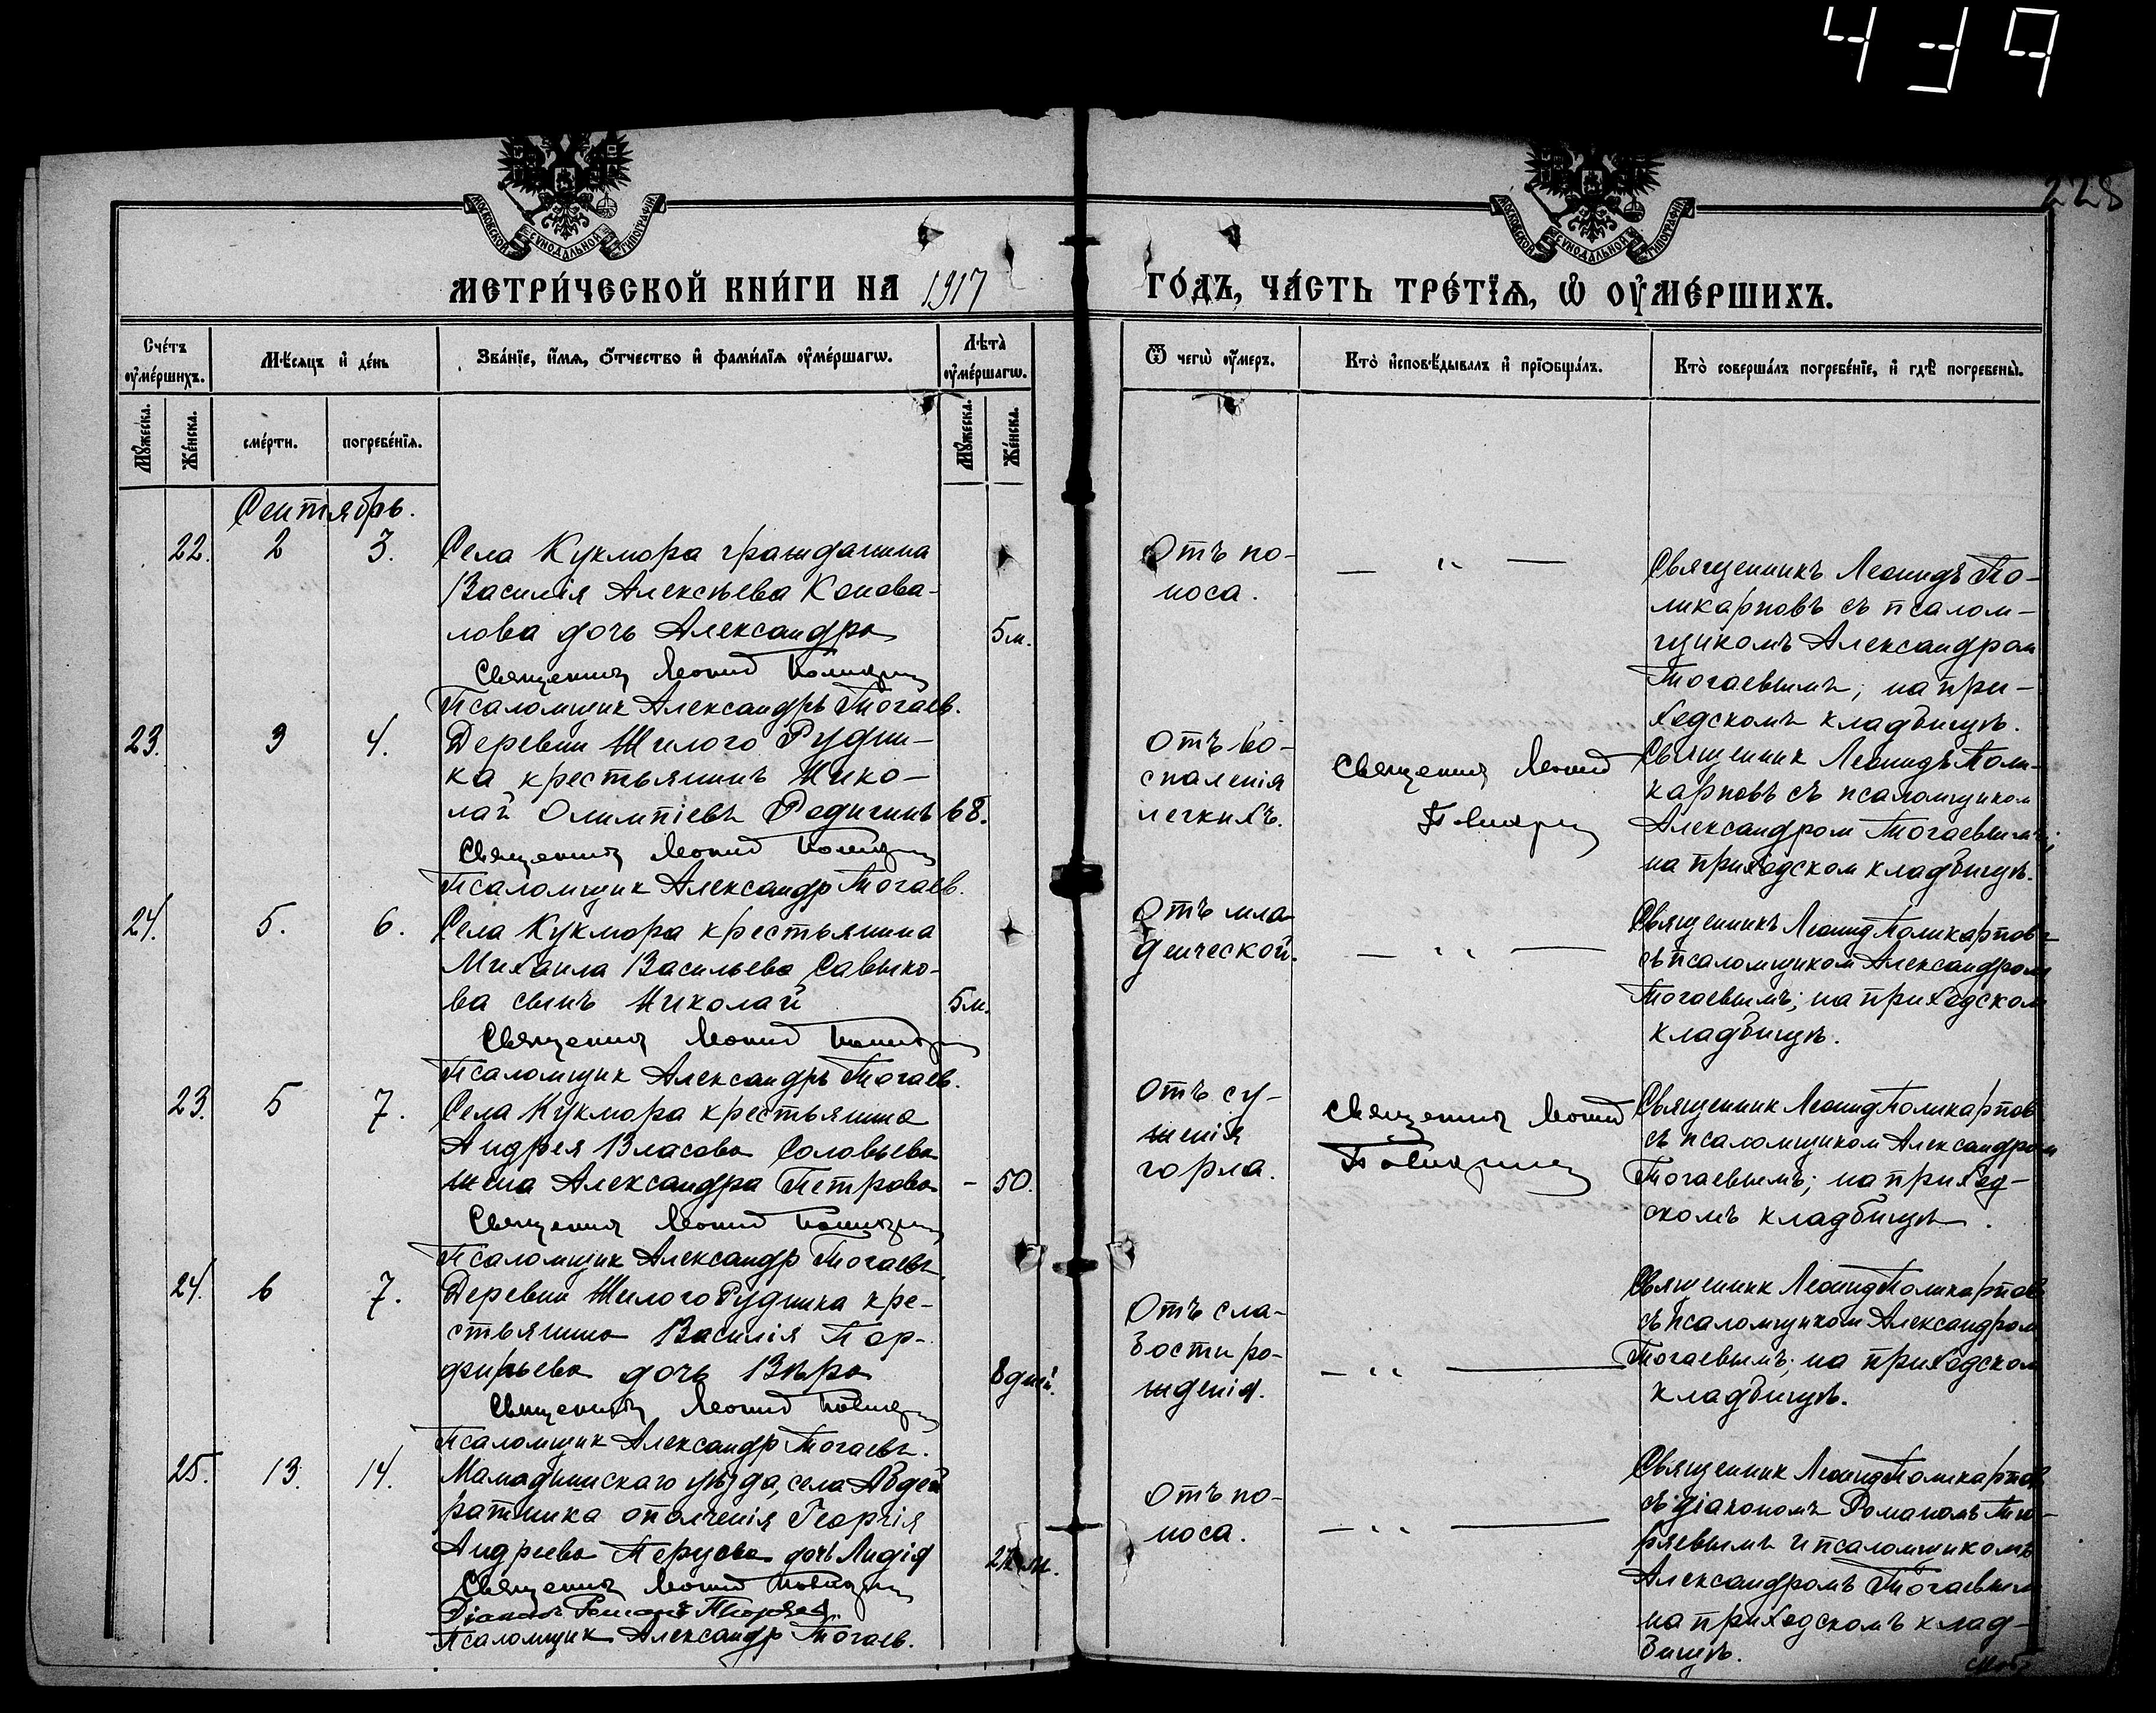 439
228
МОСКОВСКОЙ СУНОДАЛЬНОЙ ТИПОГРАФІИ
МОСКОВСКОЙ СУНОДАЛЬНОЙ ТИПОГРАФІИ
МЕТРИ́ЧЕСКОЙ КНИ́ГИ НА 1917 ГО́ДЪ, ЧА́СТЬ ТРЕ́ТЇѦ, Ѡ҆ ОУ҆МЕ́РШИХЪ.
Сче́тъ оу҆ме́ршихъ.
Мѣ́сяцъ и҆ де́нь
Зва́нїе, и҆́мя, ѻ҆́тчество и҆ фами́лїя оу҆ме́ршагѡ.
Лѣта̀ оу҆ме́ршагѡ.
Ѿ чегѡ̀ оу҆́меръ.
Кто̀ и҆сповѣ́дывалъ и҆ прїѻбща́лъ.
Кто̀ соверша́лъ погребе́нїе, и҆ гдѣ̀ погребены̀.
Мꙋ́жеска.
Же́нска.
сме́рти.
погребе́нїя.
Мꙋ́жеска.
Же́нска.
Сентябрь.
22. 2 3.
Села Кукмора гражданина
Василія Алексѣева Конова-
лова дочь Александра 5м.
Священникъ Леонид Поликарпов
Псаломщик Александръ Тогаев.
Отъ по-
носа.
— " —
Священникъ Леонидъ По-
ликарповъ съ псалом-
щикомъ Александром
Тогаевымъ; на при-
ходскомъ кладбищѣ.
23. 3 4.
Деревни Жилого Рудни-
ка крестьянинъ Нико-
лай Олимпіевъ Редигинъ 68.
Священникъ Леонид Поликарпов
Псаломщик Александр Тогаев.
Отъ во-
спаленія
легкихъ.
Священникъ Леонид
Поликарпов
Священник Леонидъ Поли-
карповъ съ псаломщиком
Александром Тогаевымъ;
на приходском кладбищѣ.
24. 5. 6.
Села Кукмора крестьянина
Михаила Васильева Савыко-
ва сынъ Николай 5м.
Священникъ Леонид Поликарпов
Псаломщик Александръ Тогаев.
Отъ мла-
денческой.
— " —
Священникъ Леонид Поликарповъ
съ псаломщиком Александром
Тогаевымъ; на приходском
кладбищѣ.
23. 5 7.
Села Кукмора крестьянина
Андрея Власова Соловьева
жена Александра Петрова - 50.
Священникъ Леонид Поликарпов
Псаломщик Александр Тогаевъ.
Отъ су-
женія
горла.
Священникъ Леонид
Поликарпов
Священник Леонид Поликарпов
съ псаломщиком Александром
Тогаевымъ; на приход-
скомъ кладбищѣ.
24. 6 7.
Деревни Жилого Рудника кре-
стьянина Василія Пор-
фирьева дочь Вѣра 8 дней.
Священникъ Леонид Поликарпов
Псаломщик Александр Тогаевъ.
Отъ сла-
бости ро-
жденія.
— " —
Священник Леонид Поликарпов
съ псаломщиком Александром
Тогаевымъ; на приходском
кладбищѣ.
25. 13. 14.
Мамадышскаго уѣзда, села Абдей
ратника ополченія Георгія
Андреева дочь Лидія
Священникъ Леонид Поликарпов
Діаконъ Романъ
Псаломщик Александр Тогаев.
Отъ по-
носа.
— " —
Священник Леонид Поликарпов
съ діакономъ Романомъ
и псаломщикомъ
Александромъ Тогаевым
на приходскомъ клад-
бищѣ.